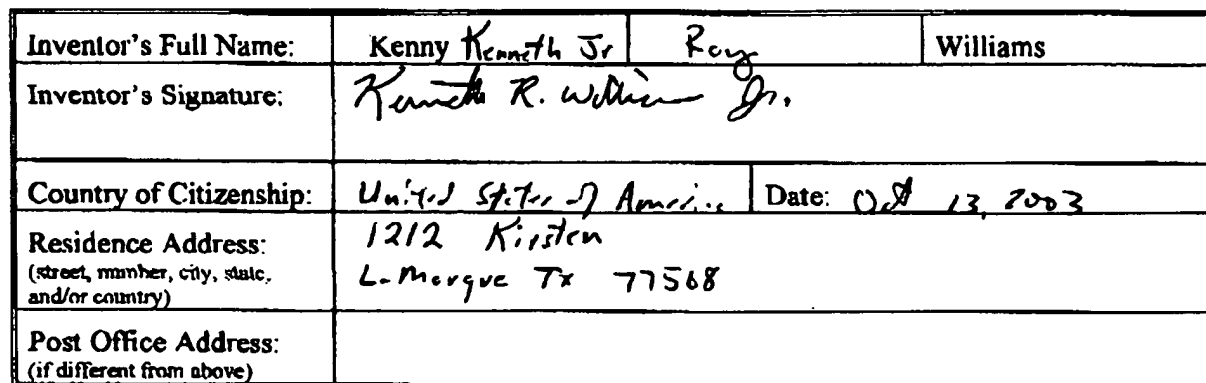 Inventor's Full Name: Kenny Kenneth Jr Ray Williams
Inventor's Signature: Kenneth R. Williams Jr.
Country of Citizenship: United States of America Date: Oct 13, 2003
Residence Address: 1212 Kirsten
(street, number, city, state, La Marque Tx 77568
and/or country)
Post Office Address:
(if different from above)